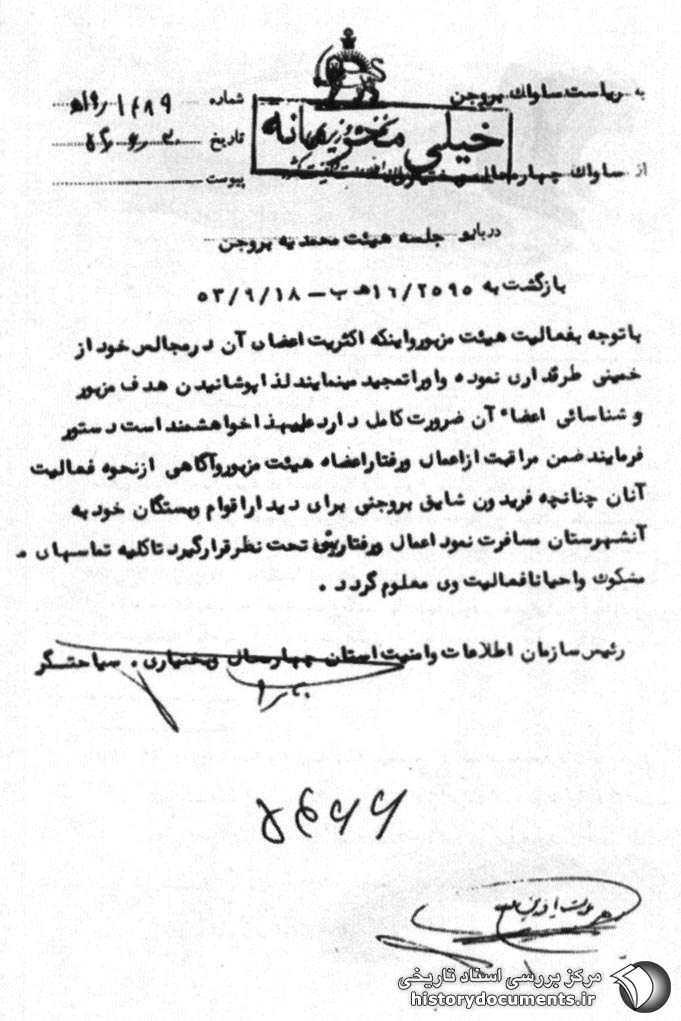 به ریاست ساواک بروجن
شماره
تاریخ
خیلی محرمانه
از ساواک چهارمحال
پیوست
درباره جلسه هیئت محمدیه بروجن
بازگشت به ۱۶/۲۵۹۵ ه ب - ۵۳/۶/۱۸
باتوجه بفعالیت هیئت مزبور واینکه اکثریت اعضای آن درمجالس خود از
خمینی طرفداری نموده واوراتمجید مینمایند لذا پوشانیدن هدف مزبور
و شناسائی اعضاء آن ضرورت کامل دارد علیهذا خواهشمند است دستور
فرمایند ضمن مراقبت ازاعمال ورفتاراعضاء هیئت مزبوروآگاهی ازنحوه فعالیت
آنان چنانچه فریدون شایق بروجنی برای دیداراقوام وبستگان خود به
آنشهرستان مسافرت نمود اعمال ورفتار تحت نظر قرارگیرد تاکلیه تماسهای
مشکوک واحیانا فعالیت وی معلوم گردد .
رئیس سازمان اطلاعات وامنیت استان چهارمحال وبختیاری . سیاحتگر
مرکز بررسی اسناد تاریخی
historydocuments.ir